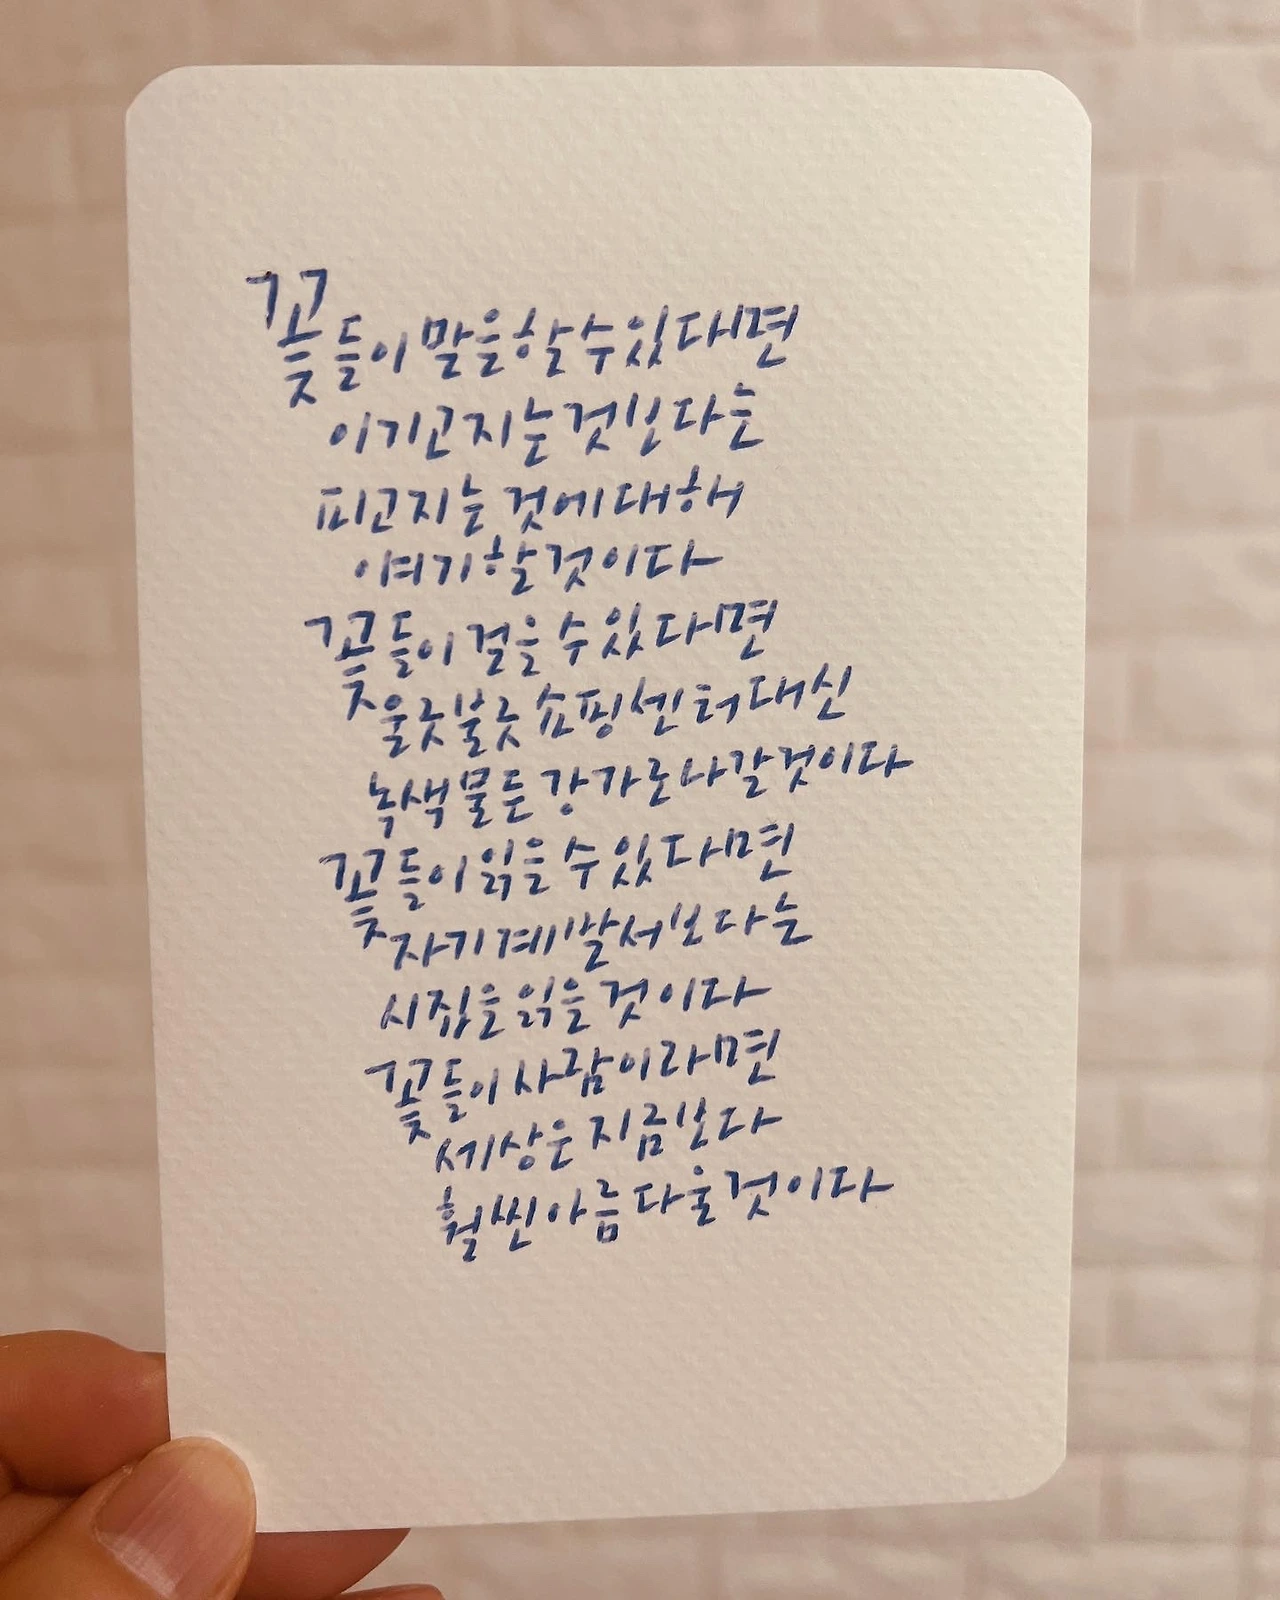 꽃들이 말을 할 수 있다면
이기고 지는 것보다는
피고 지는 것에 대해
얘기할 것이다
꽃들이 걸을 수 있다면
울긋불긋 쇼핑센터 대신
녹색 물든 강가로 나갈 것이다
꽃들이 읽을 수 있다면
자기계발서보다는
시집을 읽을 것이다
꽃들이 사람이라면
세상은 지금보다
훨씬 아름다울 것이다